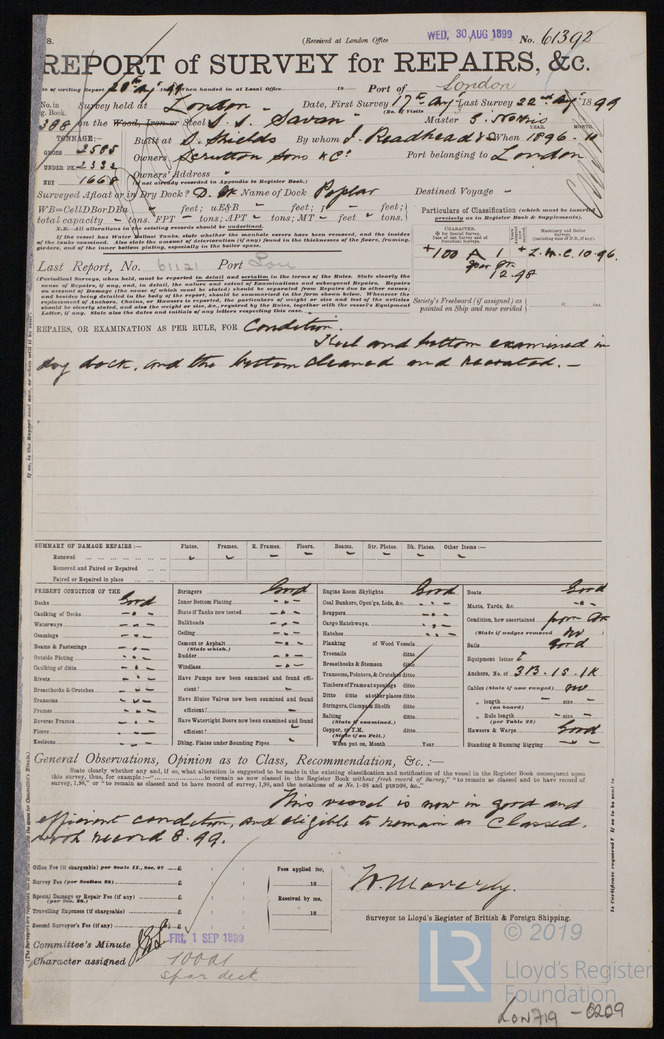 8.
(Received at London Office WED, 30 AUG 1899 No. 61392
REPORT of SURVEY for REPAIRS, &c.
Date of writing Report 28th Aug 1899 When handed in at Local Office 18 Port of London
No. in Reg. Book. Survey held at London Date, First Survey 17th Aug Last Survey 22nd Aug 1899
(No. of Visits
388 on the Wood, Iron or Steel S. S. Savan Master S. Norris
TONNAGE:— Built at S. Shields By whom J. Readhead & Co When 1896 - 10
YEAR. MONTH.
GROSS 2585
UNDER DK 2332 Owners Scrutton Sons & Co. Port belonging to London
NET 1668 Owners' Address
(if not already recorded in Appendix to Register Book.)
Surveyed Afloat or in Dry Dock? D. Dk Name of Dock Poplar Destined Voyage -
WB=CellDBorDBa feet; uE&B feet; f feet;
total capacity tons. FPT tons; APT tons; MT feet tons.
N.B.—All alterations in the existing records should be underlined.
If the vessel has Water Ballast Tanks, state whether the manhole covers have been removed, and the insides of the tanks examined. Also state the amount of deterioration (if any) found in the thicknesses of the floors, framing, girders, and of the inner bottom plating, especially in the boiler space.
Particulars of Classification (which must be inserted precisely as in Register Book & Supplements).
CHARACTER.
Machinery and Boiler Survey
+100 A 1 + L.M.C. 10.96.
12.98
Last Report, No. 61121 Port Lon
(Periodical Surveys, when held, must be reported in detail and seriatim in the terms of the Rules. State clearly the cause of Repairs, if any, and, in detail, the nature and extent of Examinations and subsequent Repairs. Repairs on account of Damage (the cause of which must be stated) should be separated from Repairs due to other causes; and besides being detailed in the body of the report, should be summarised in the form shown below.
Society's Freeboard (if assigned) as painted on Ship and now verified ft. ins.
REPAIRS, OR EXAMINATION AS PER RULE, FOR Condition.
Keel and bottom examined in
dry dock, and the bottom cleaned and recoated. —
SUMMARY OF DAMAGE REPAIRS:— Plates. Frames. R. Frames. Floors. Beams. Str. Plates. Dk. Plates. Other Items:—
Renewed
Removed and Faired or Repaired
Faired or Repaired in place
PRESENT CONDITION OF THE
Decks Good
Caulking of Decks
Waterways
Coamings
Beams & Fastenings
Outside Plating
Caulking of ditto
Rivets
Breasthooks & Crutches
Transoms
Frames
Reverse Frames
Floors
Keelsons
Stringers Good
Inner Bottom Plating
State if Tanks now tested
Bulkheads
Ceiling
Cement or Asphalt
(State which.)
Rudder
Windlass
Have Pumps now been examined and found efficient?
Have Sluice Valves now been examined and found efficient?
Have Watertight Doors now been examined and found efficient?
Dblng. Plates under Sounding Pipes
Engine Room Skylights Good
Coal Bunkers, Open'gs, Lids, &c.
Scuppers
Cargo Hatchways.
Hatches
Planking of Wood Vessels
Treenails ditto
Breasthooks & Stemson ditto
Transoms, Pointers, & Crutches ditto
Timbers of Frame at openings ditto
Ditto ditto at other places ditto
Stringers, Clamps & Shelfs ditto
Salting ditto
(State if examined.)
Copper, or Y.M.
(State if on Felt.)
When put on, Month Year
Boats Good
Masts, Yards, &c.
Condition, how ascertained from Dk
(State if wedges removed) no
Sails Good
Equipment letter
Anchors, No. of 3B. 1S. 1K
Cables (State if now ranged) no
" length size
(on board)
" Rule length size
(per Table 22)
Hawsers & Warps Good
Standing & Running Rigging
General Observations, Opinion as to Class, Recommendation, &c.:—
State clearly whether any and, if so, what alteration is suggested to be made in the existing classification and notification of the vessel in the Register Book consequent upon this survey, thus, for example:— to remain as now classed in the Register Book without fresh record of Survey," "to remain as classed and to have record of survey, 1,98," or "to remain as classed and to have record of survey, 1,98, and the notations of ss No. 1-98 and ptND98, &c."
This vessel is now in good and
efficient condition, and eligible to remain as Classed,
with record 8.99.
Office Fee (if chargeable) per Scale II., Sec. 27 £
Survey Fee (per Section 28) £
Special Damage or Repair Fee (if any) £
(per Sec. 28.)
Travelling Expenses (if chargeable) £
Second Surveyor's Fee (if any) £
Fees applied for,
18
Received by me,
18
Surveyor to Lloyd's Register of British & Foreign Shipping.
Committee's Minute FRI, 1 SEP 1899
Character assigned 100A1
spar deck
LR © 2019
Lloyd's Register
Foundation
LON719 - 0209